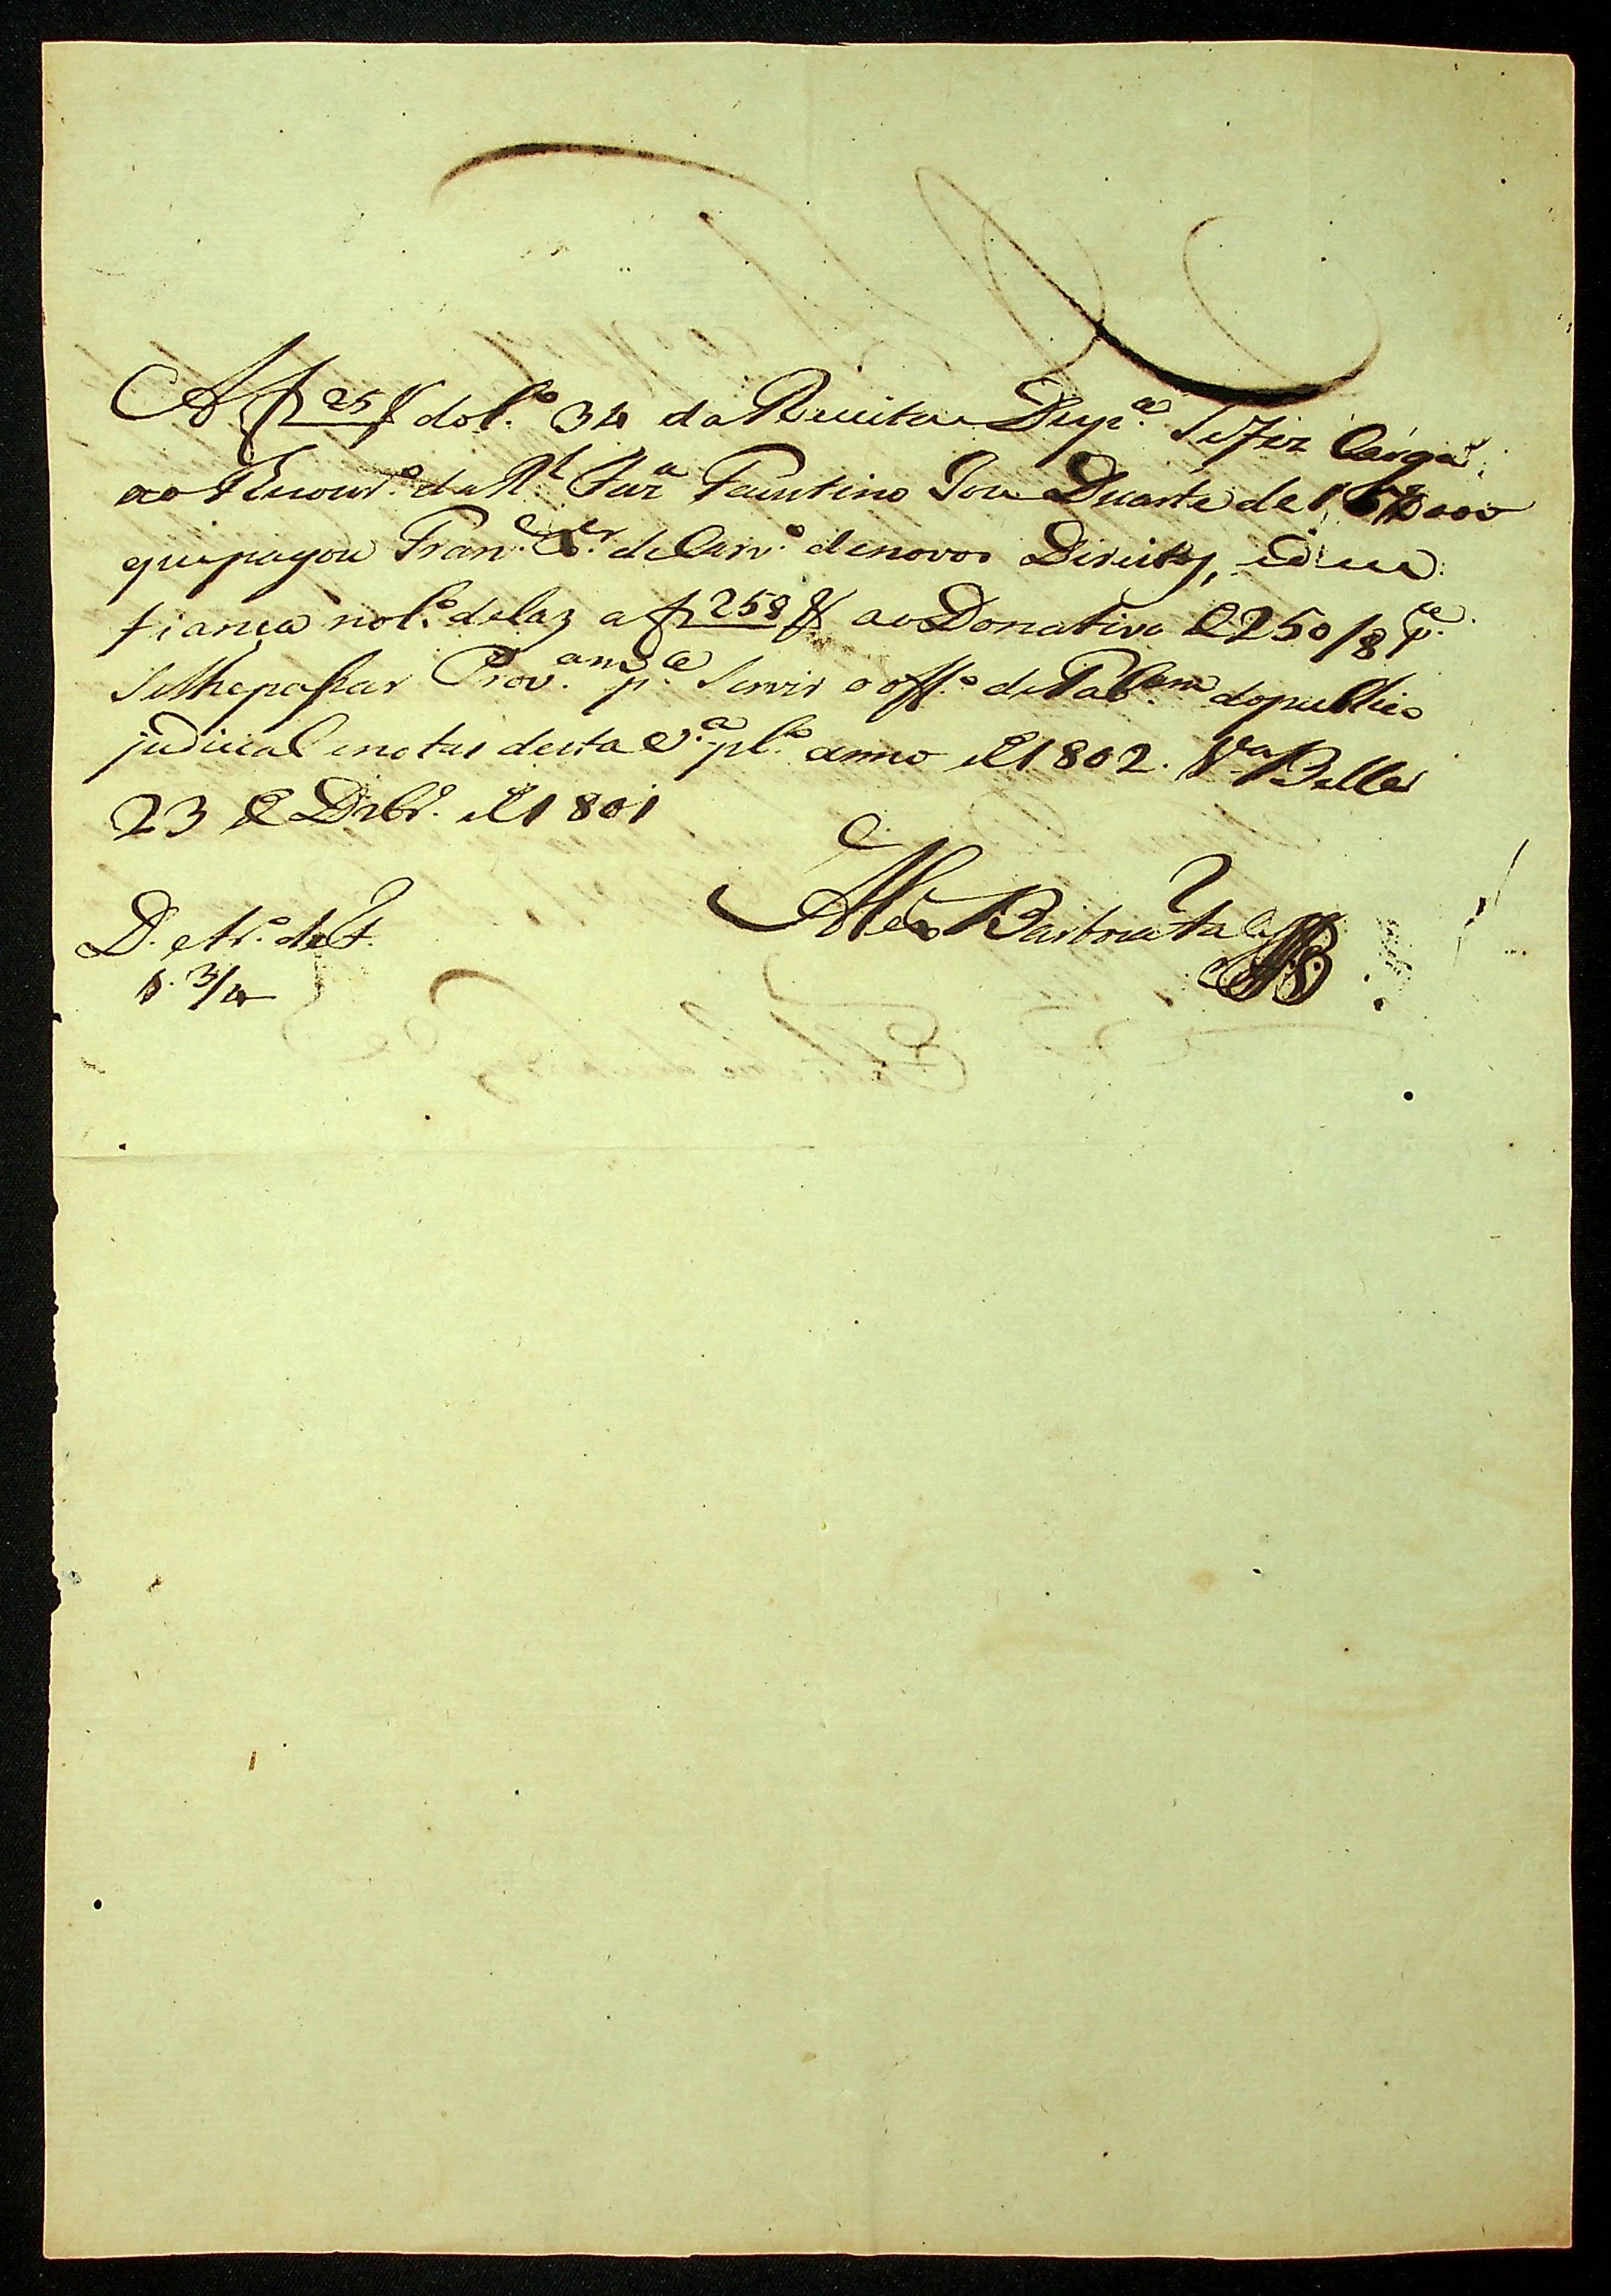 A f 25 f dol.º 34 da Receita e Desp.ª Se fez Carga
ao Thezour.º da R.l Faz.ª Faustino Joze Duarte de
que pagou Fran.co X.er de Carv.º de novos Direitos, e deu
fiança no l.º delas a f 258 f ao Donativo de 250/8 p.ª
Se lhe passar Prov.am p.ª Servir o off.º de Tab.am do publico
judicial e notas desta V.ª p.lo anno de 1802. V.ª Bella
23 de Dezbr.º de 1801
Barboza
D. e
1. 3/4